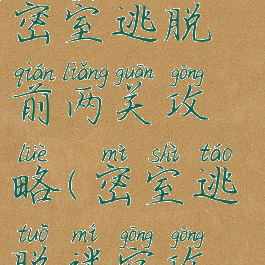 密室逃脱
qián liǎng guān gōng
前两关攻
lüè mì shì táo
略(密室逃
tuō mí gōng gōng
脱迷宫攻